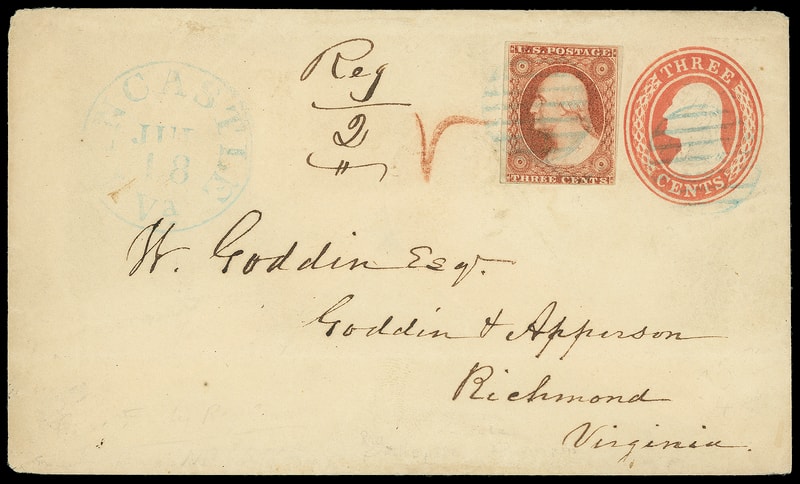 NCASTLE
JUN
18
VA
Reg
2
U.S. POSTAGE
THREE CENTS
THREE
CENTS
W. Goddin Esqr.
Goddin & Apperson
Richmond
Virginia.